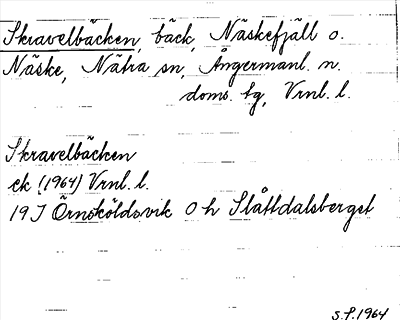 Skravelbäcken, bäck, Näskefjäll o.
Näske, Nätra sn, Ångermanl. n.
doms. tg, Vrnl. l.
Skravelbäcken
ek (1964) Vrnl. l.
19 I Örnsköldsvik O h Slåttdalsberget
S.P. 1964